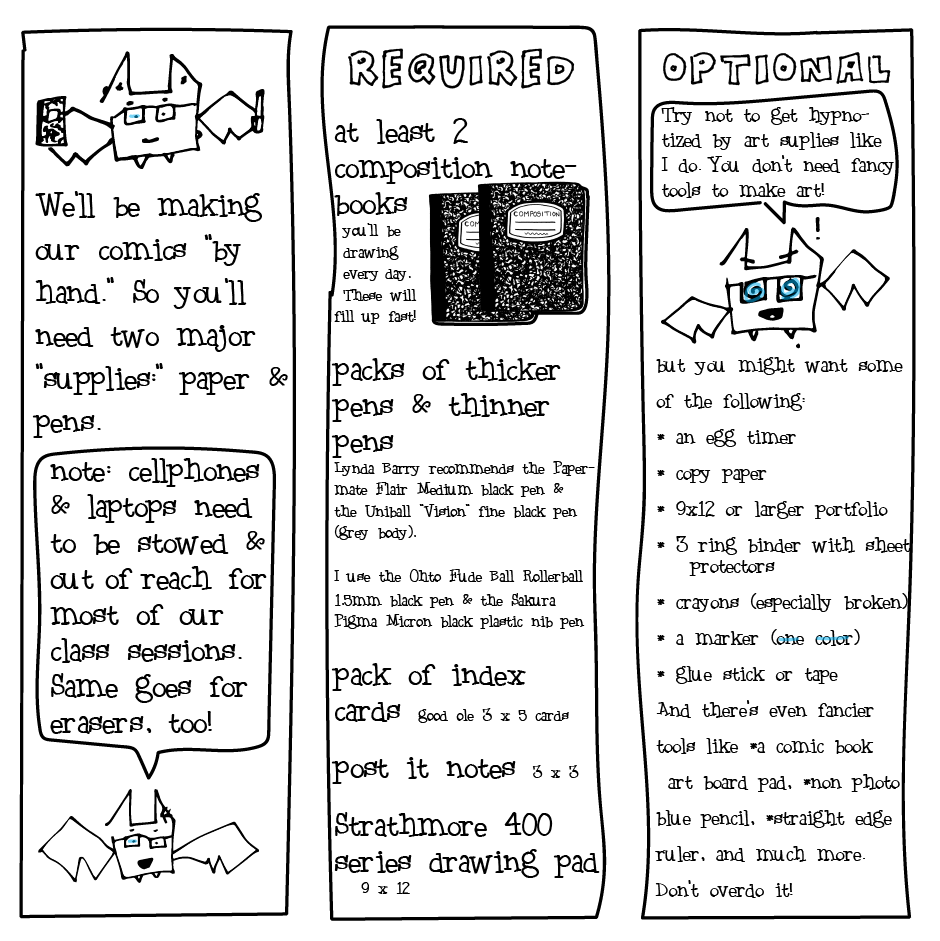 We'll be making
our comics "by
hand." So you'll
need two major
"supplies:" paper &
pens.
note: cellphones
& laptops need
to be stowed &
out of reach for
most of our
class sessions.
Same goes for
erasers, too!
REQUIRED
at least 2
composition note-
books
COMPOSITION
you'll be
drawing
every day.
These will
fill up fast!
packs of thicker
pens & thinner
pens
Lynda Barry recommends the Paper-
mate Flair Medium black pen &
the Uniball "Vision" fine black pen
(grey body).
I use the Ohto Fude Ball Rollerball
1.5mm black pen & the Sakura
Pigma Micron black plastic nib pen
pack of index
cards good ole 3 x 5 cards
post it notes 3 x 3
Strathmore 400
series drawing pad
9 x 12
OPTIONAL
Try not to get hypno-
tized by art suplies like
I do. You don't need fancy
tools to make art!
!
but you might want some
of the following:
* an egg timer
* copy paper
* 9x12 or larger portfolio
* 3 ring binder with sheet
protectors
* crayons (especially broken)
* a marker (one color)
* glue stick or tape
And there's even fancier
tools like *a comic book
art board pad, *non photo
blue pencil, *straight edge
ruler, and much more.
Don't overdo it!